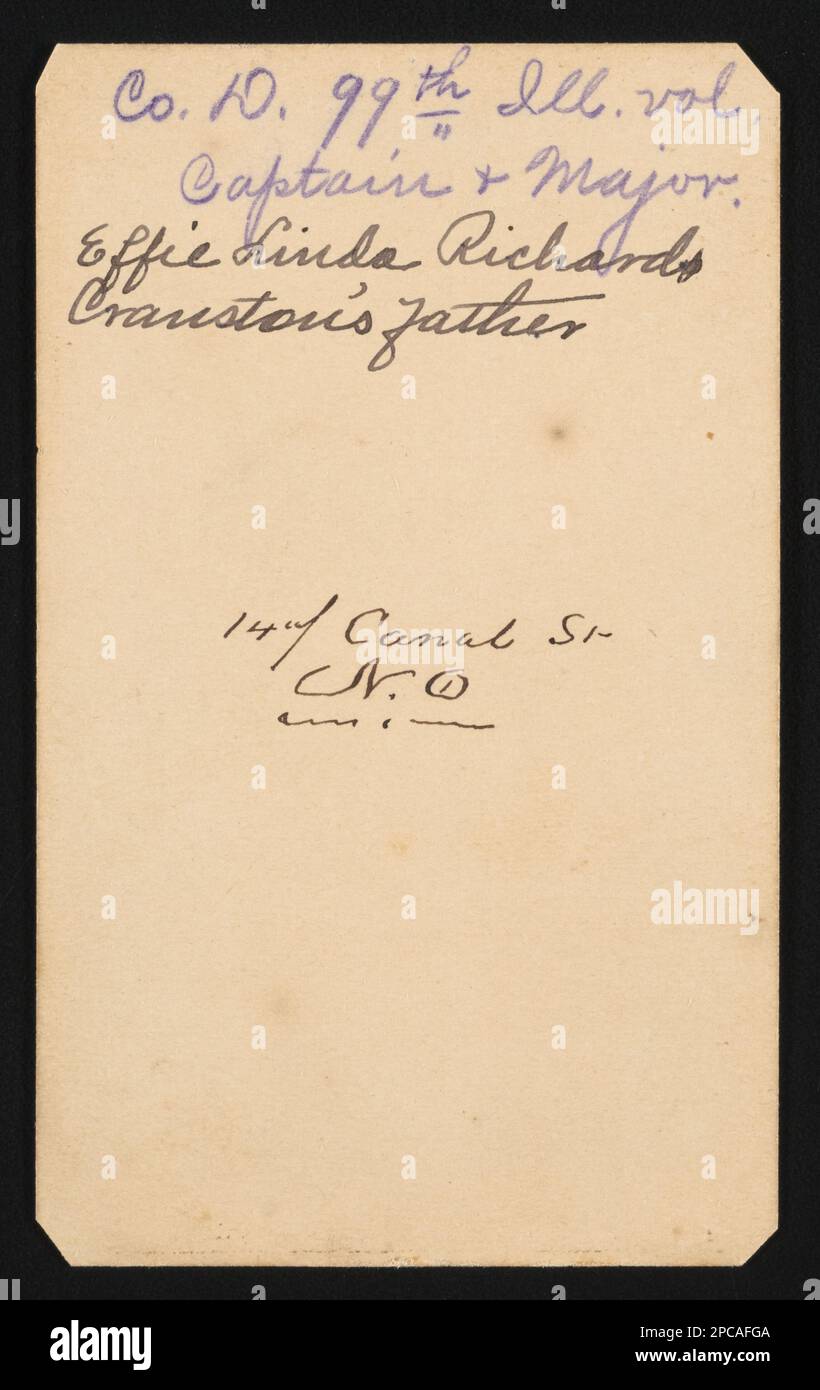 Co. D. 99th Ill. vol.
Captain & Major.
Effie Linda Richards
Cranston's father
Canal St
N. O
alamy
Image ID: 2PCAFGA
www.alamy.com